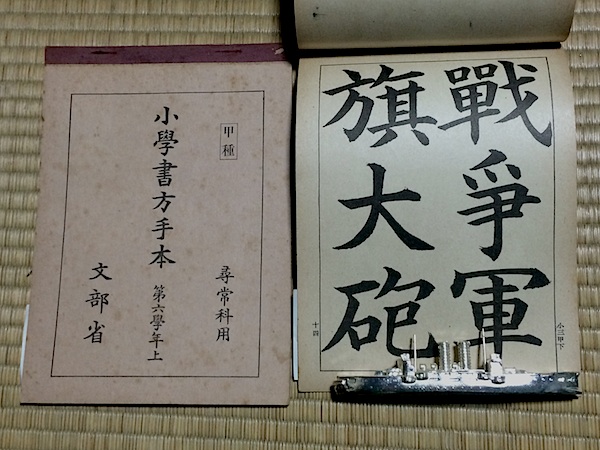 甲種
小學書方手本 第六學年上
尋常科用
文部省
戰爭軍
旗大砲
小三甲下
十四